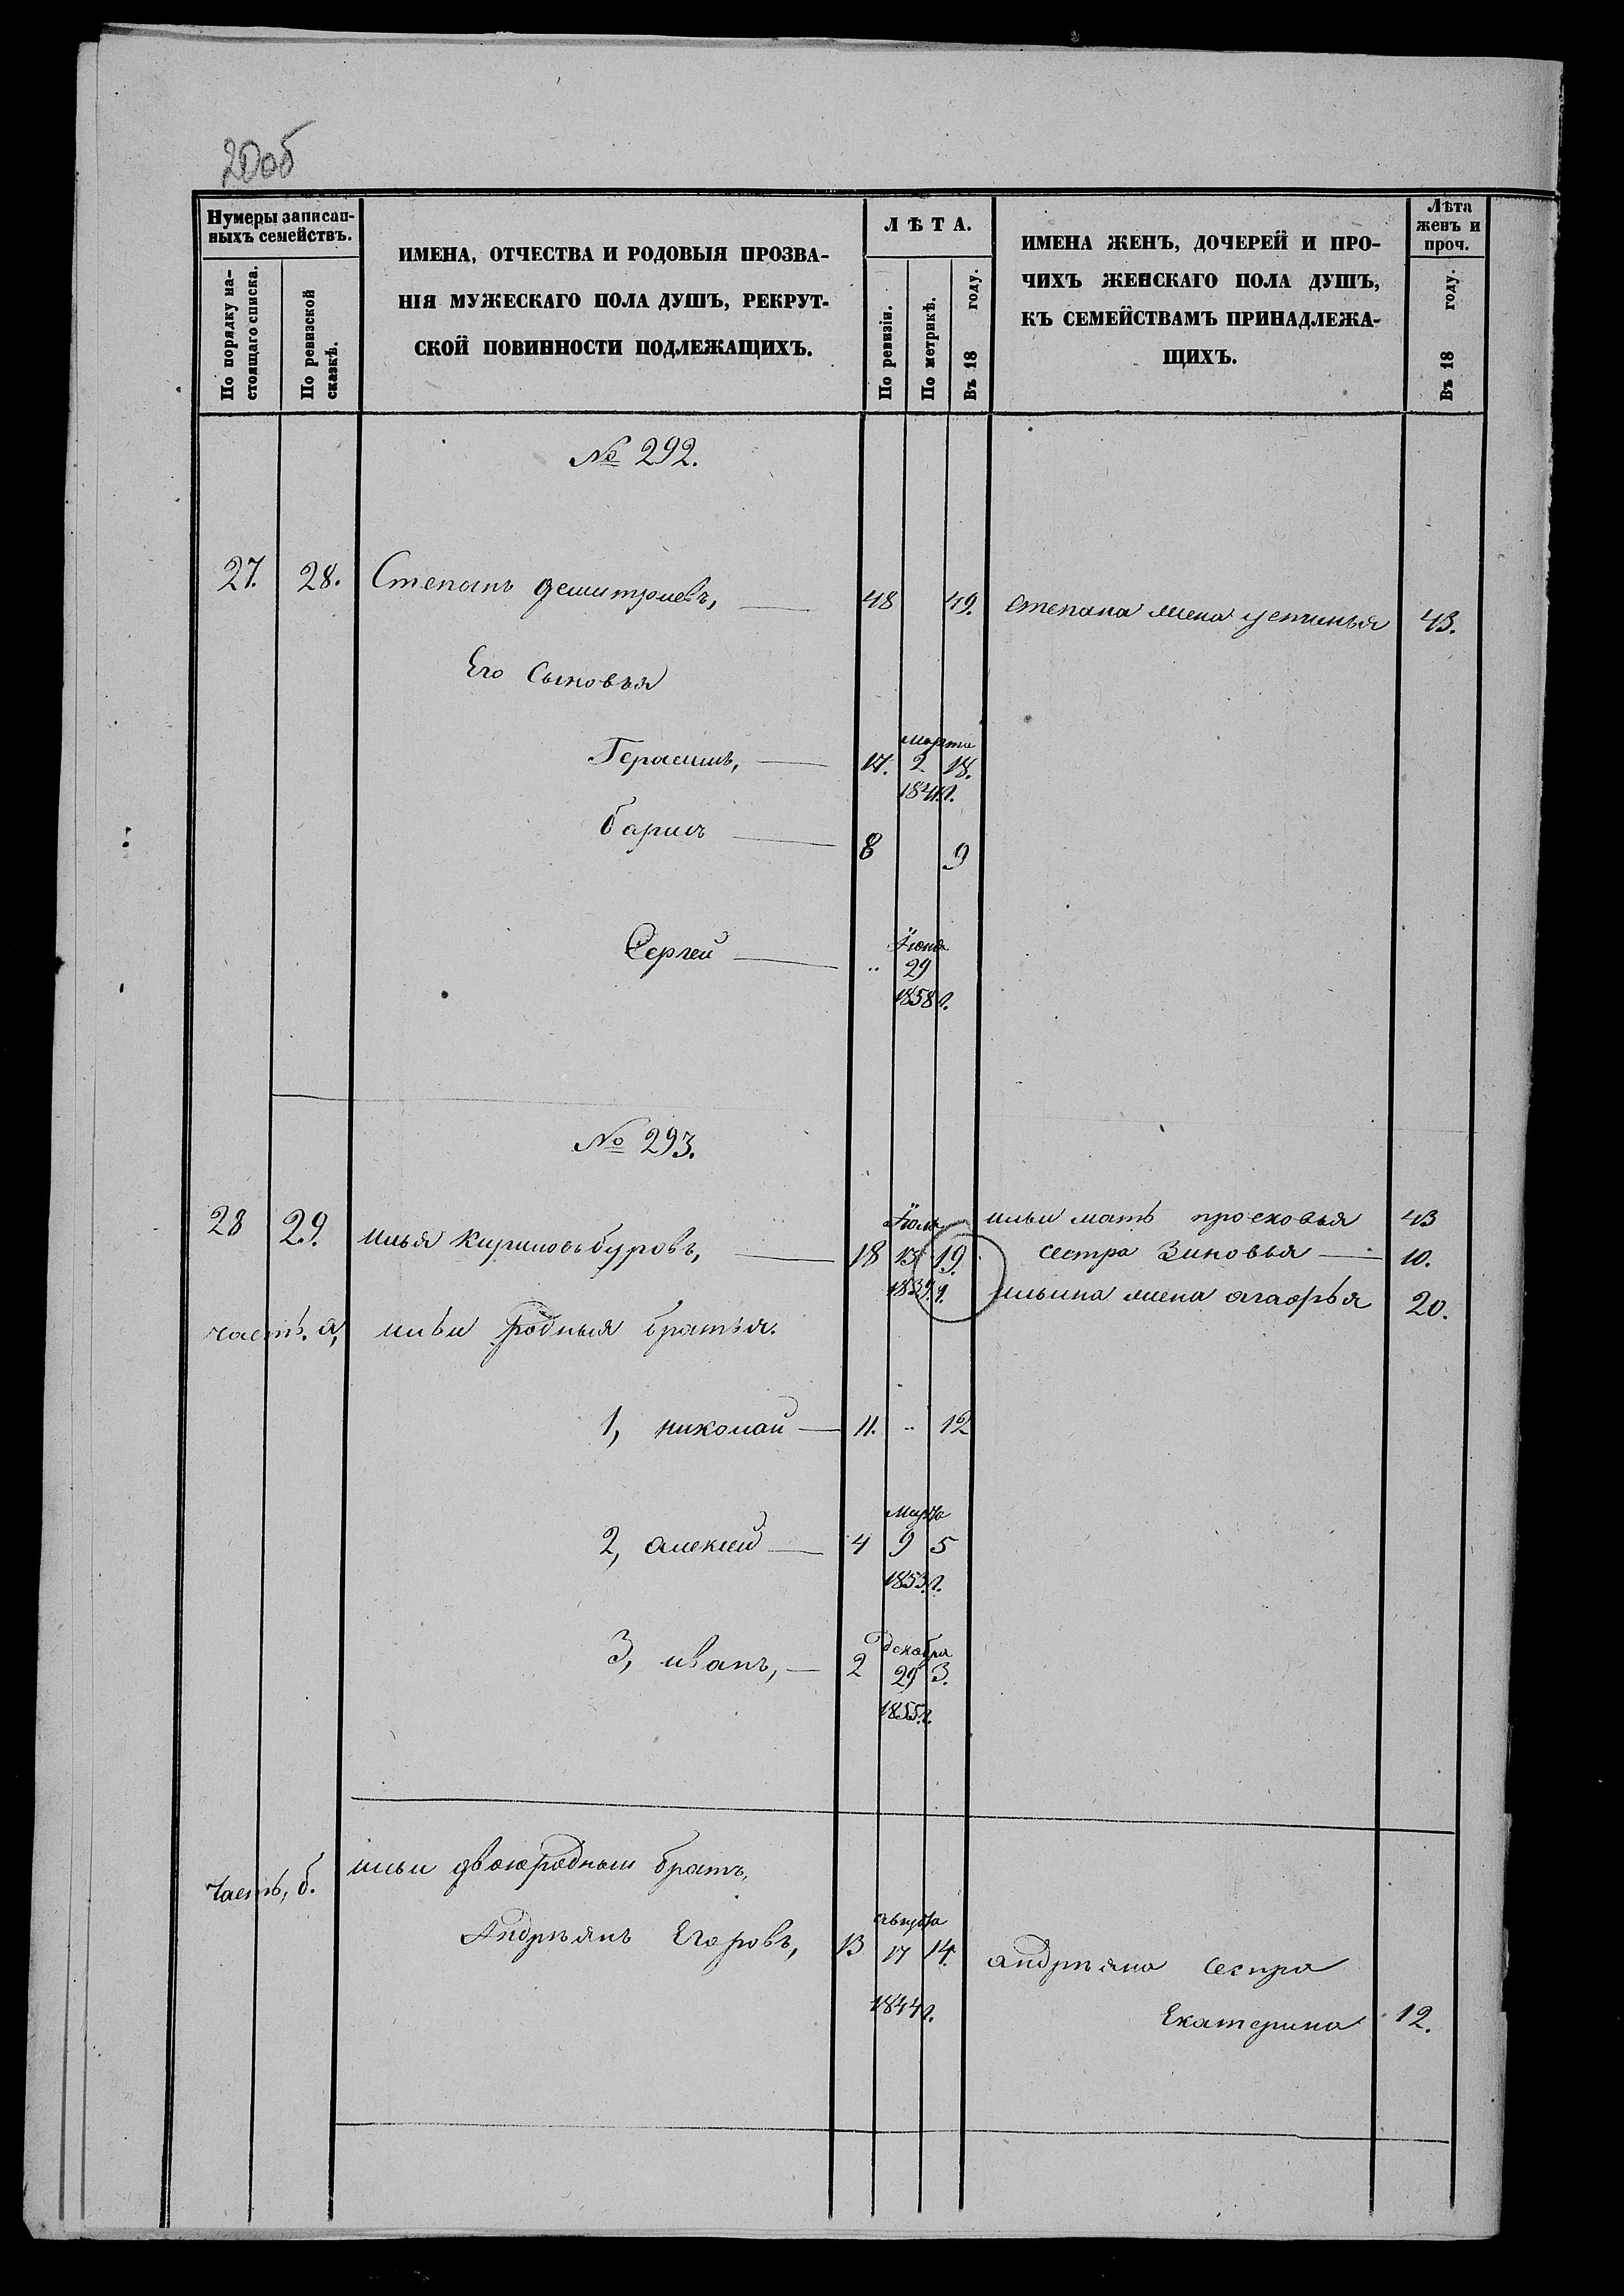 20об
Нумеры записан-
ныхъ семействъ.
По порядку на-
стоящаго списка.
По ревизской
сказкѣ.
ИМЕНА, ОТЧЕСТВА И РОДОВЫЯ ПРОЗВА-
НІЯ МУЖЕСКАГО ПОЛА ДУШЪ, РЕКРУТ-
СКОЙ ПОВИННОСТИ ПОДЛЕЖАЩИХЪ.
ЛѢТА.
По ревизіи.
По метрикѣ.
Въ 18 году.
ИМЕНА ЖЕНЪ, ДОЧЕРЕЙ И ПРО-
ЧИХЪ ЖЕНСКАГО ПОЛА ДУШЪ,
КЪ СЕМЕЙСТВАМЪ ПРИНАДЛЕЖА-
ЩИХЪ.
Лѣта
женъ и
проч.
Въ 18 году.
№ 292.
27. 28. Степанъ Демитриевъ, 48 49. Степана жена устинья 43.
Его Сыновья
марта
Герасимъ, 17. 2 18.
1841г.
барисъ 8 9
Іюня
Сергей " 29
1858г.
№ 293.
Іюля ильи мать просковья 43
28 29. илья Кириловъ буровъ, 18 13 19. сестра Зиновья 10.
1839г. ильина жена агафья 20.
часть. а, ильи родныя братья.
1, николай 11. " 12
марта
2, алексей 4 9 5
1853.г.
декабря
3, иванъ, 2 29 3.
1855.г.
часть, б. ильи двоюродный братъ,
августа
Андреянъ Егоровъ, 13 17 14. андреяна сестра
1844г. Екатерина 12.